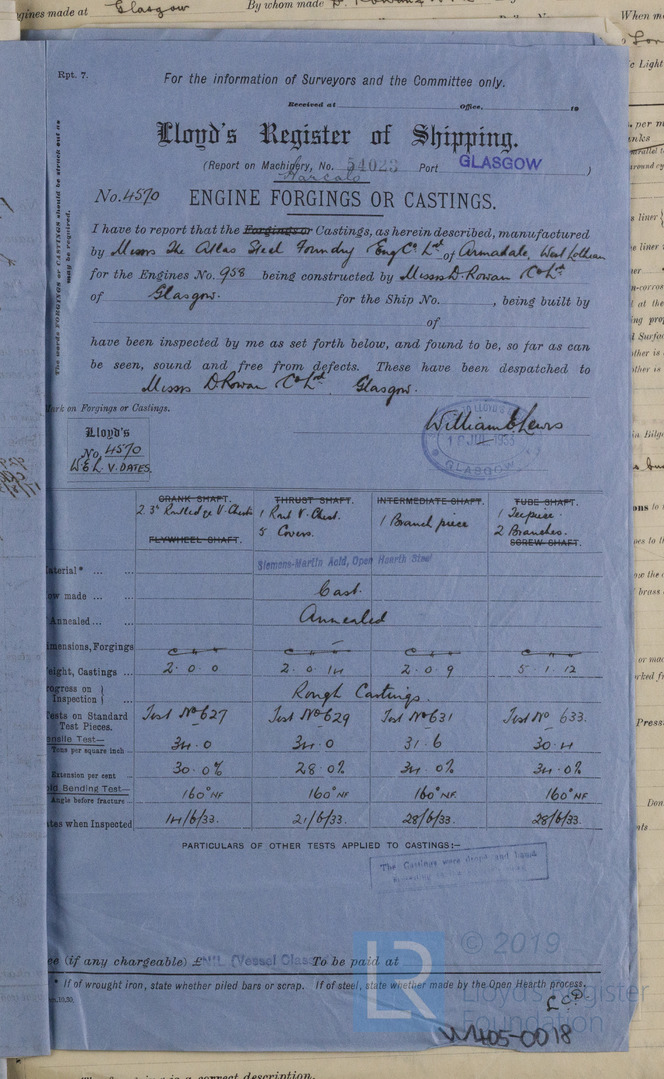 gines made at Glasgow By whom made D. Rowan
When m
Rpt. 7.
For the information of Surveyors and the Committee only.
Received at Office, 19
Lloyd's Register of Shipping.
(Report on Machinery, No. 54023 Port GLASGOW )
No. 4570 ENGINE FORGINGS OR CASTINGS.
The words FORGINGS or CASTINGS should be struck out as
may be required.
I have to report that the Forgings or Castings, as herein described, manufactured
by Messrs The Atlas Steel Foundry Eng Co Ltd of Armadale, West Lothian
for the Engines No. 958 being constructed by Messrs D. Rowan Co Ltd
of Glasgow. for the Ship No. , being built by
of
have been inspected by me as set forth below, and found to be, so far as can
be seen, sound and free from defects. These have been despatched to
Messrs D. Rowan Co Ltd, Glasgow.
ark on Forgings or Castings.
William E Lewis
LLOYD'S
18 JUL 1933
GLASGOW
Lloyd's
No. 4570
W.E.L. V. DATES.
CRANK SHAFT. THRUST SHAFT. INTERMEDIATE SHAFT. TUBE SHAFT.
V. Chests 1 V. Chest. 1 Branch piece 1 Teepiece
5 Covers. 2 Branches.
FLYWHEEL SHAFT. SCREW SHAFT.
aterial* ... ... Siemens-Martin Acid, Open Hearth Steel
ow made ... ... Cast.
Annealed ... ... Annealed
mensions, Forgings
eight, Castings ... 2 . 0 . 0 2 . 0 . 14 2 . 0 . 9 5 . 1 . 12
rogress on } Inspection } Rough Castings.
ests on Standard Test Pieces. Test No 627 Test No 629 Test No 631 Test No 633.
ensile Test— Tons per square inch ... 34.0 34.0 31.6 30.4
Extension per cent ... 30.0% 28.0% 34.0% 34.0%
ld Bending Test— Angle before fracture ... 160° NF 160° NF 160° NF 160° NF
tes when Inspected 14/6/33. 21/6/33. 28/6/33. 28/6/33.
PARTICULARS OF OTHER TESTS APPLIED TO CASTINGS:—
The Castings were
ee (if any chargeable) £ NIL (Vessel Class To be paid at
* If of wrought iron, state whether piled bars or scrap. If of steel, state whether made by the Open Hearth process.
m.10,30.
LR © 2019
Lloyd's Register
Foundation
W405-0018
is a correct description.